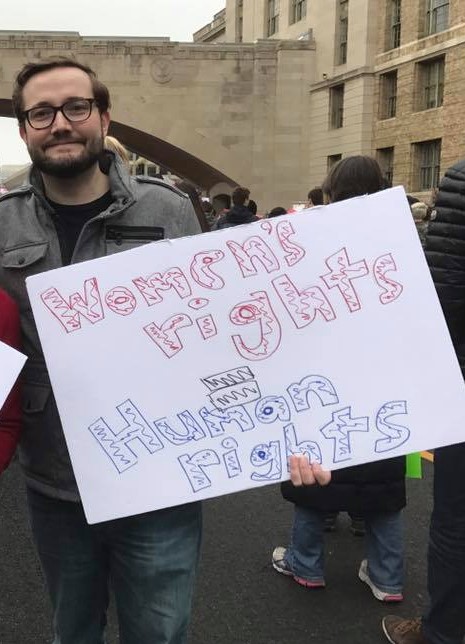 Women's
rights
=
Human
rights